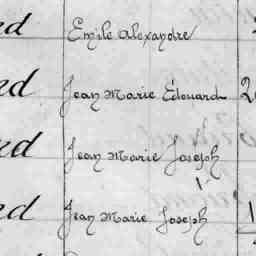 nd Emile Alexandre
nd Jean Marie Édouard 2
nd Jean Marie Joseph
nd Jean Marie Joseph 1